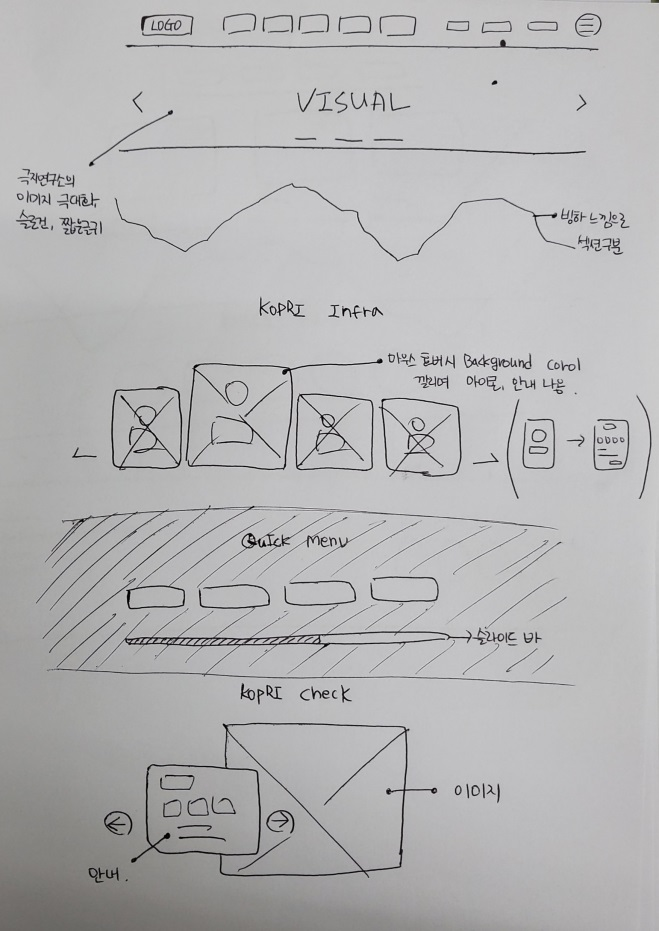 LOGO
VISUAL
극지연구소의
이미지 극대화,
슬로건, 짧은글귀
빙하 느낌으로
섹션구분
KOPRI Infra
마우스 호버시 Background corol
깔리며 아이콘, 안내 나옴.
Quick Menu
슬라이드 바
KOPRI check
이미지
안내.